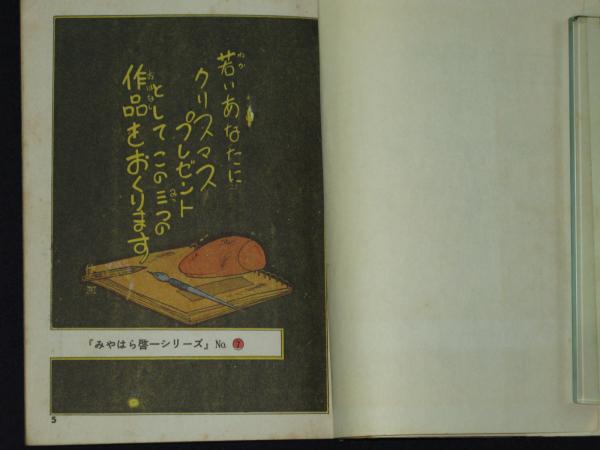 若いあなたに
クリスマス
プレゼント
として この三つの
作品をおくります
『みやはら啓一シリーズ』No. 7
5